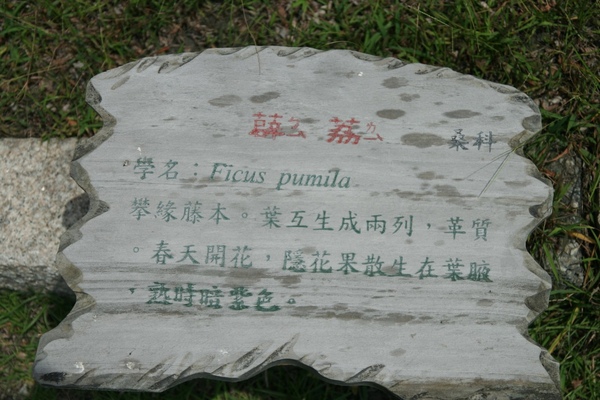 荔 桑科
。學名：Ficus pumila
攀緣藤本。葉互生成兩列，革質
。春天開花，隱花果散生在葉腋
，熟時暗紫色。